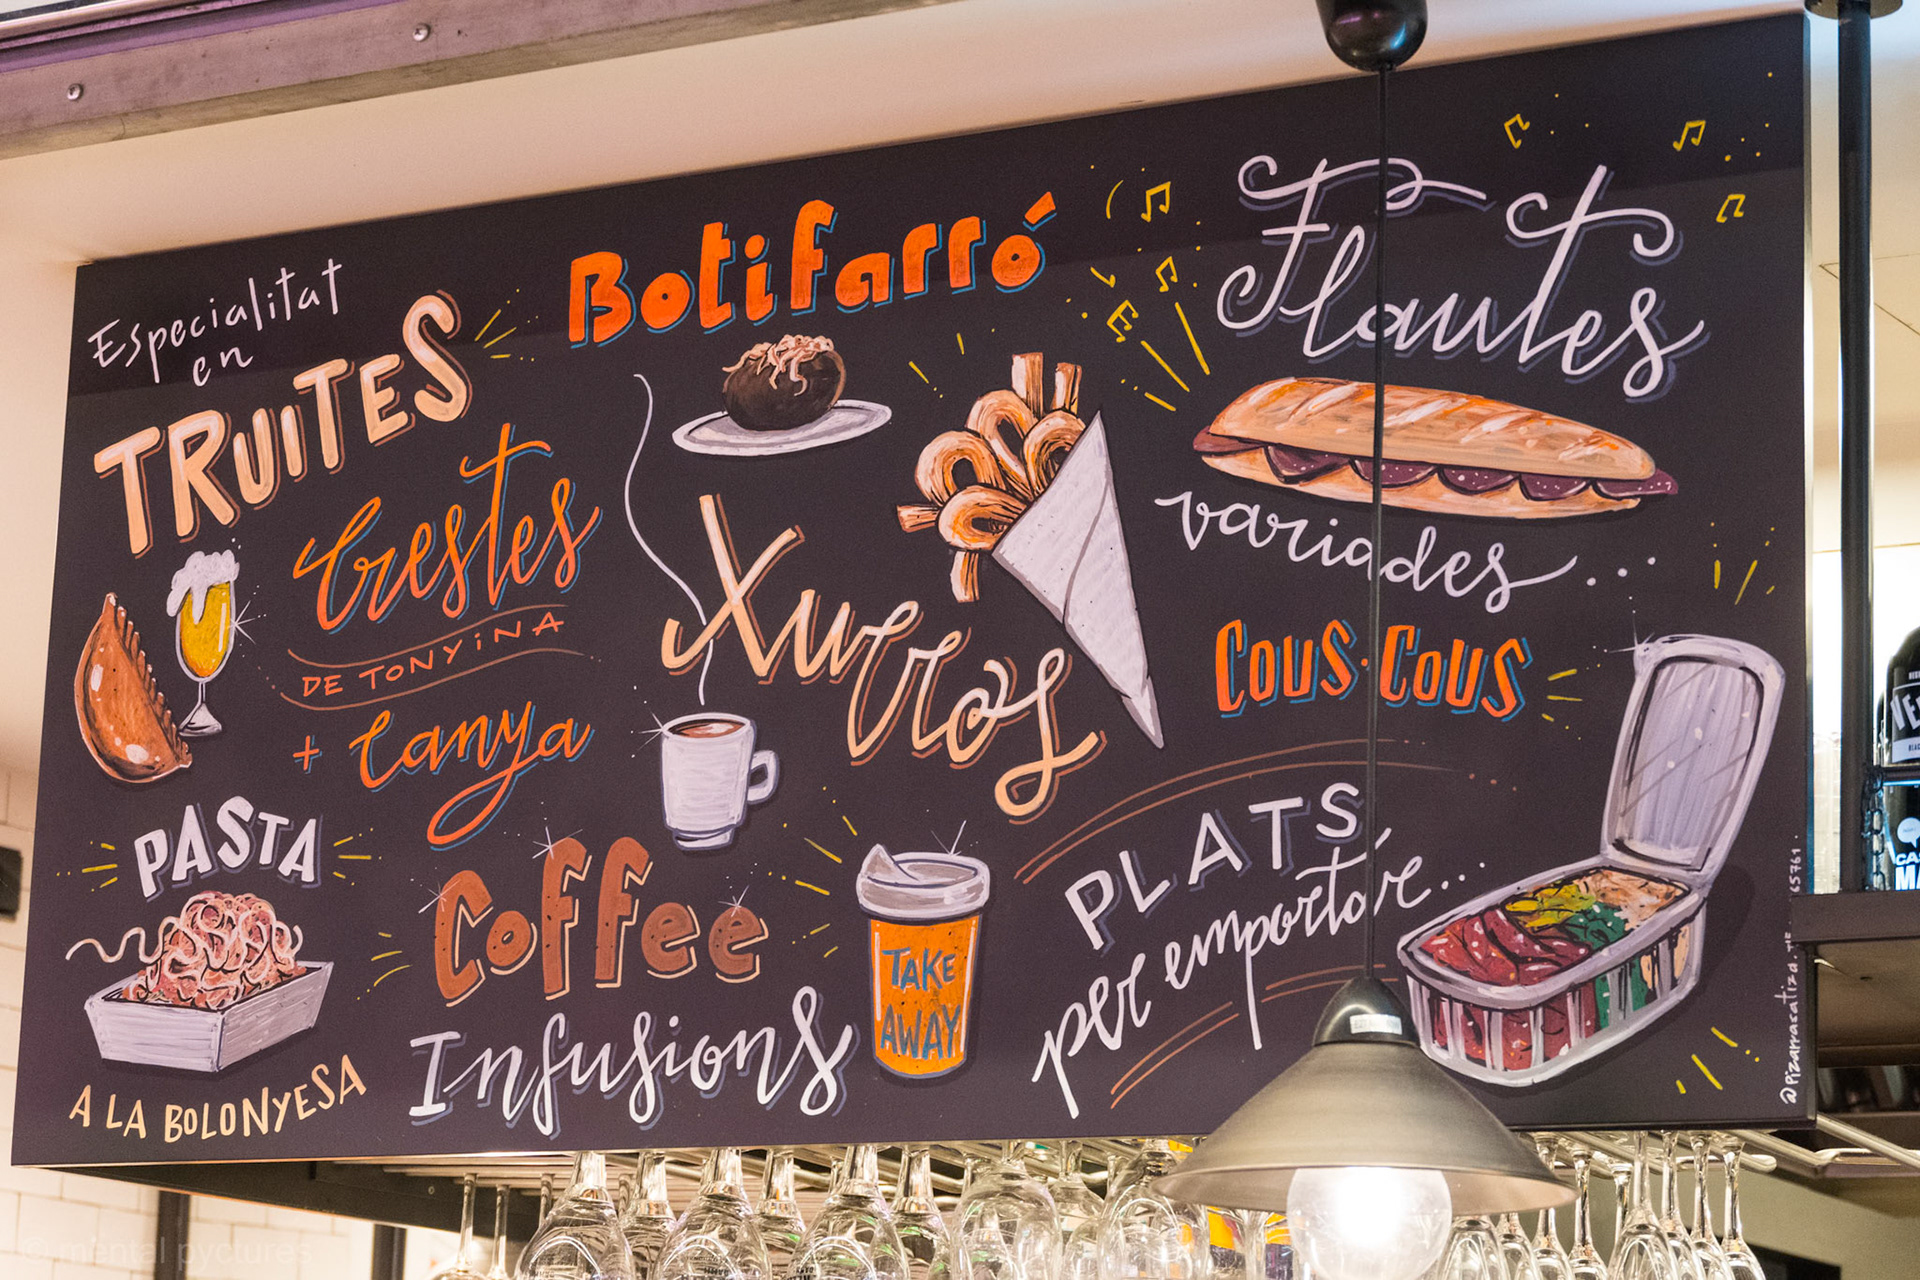 Especialitat
en
TRUITES
Crestes
DE TONYiNA
+ Canya
PASTA
A LA BOLONYESA
Botifarró
Xurros
Coffee
Infusions
TAKE
AWAY
Flautes
variades...
COUS·COUS
PLATS
per emportar...
@Pizarrascatiza.
65761
© mental pyctures